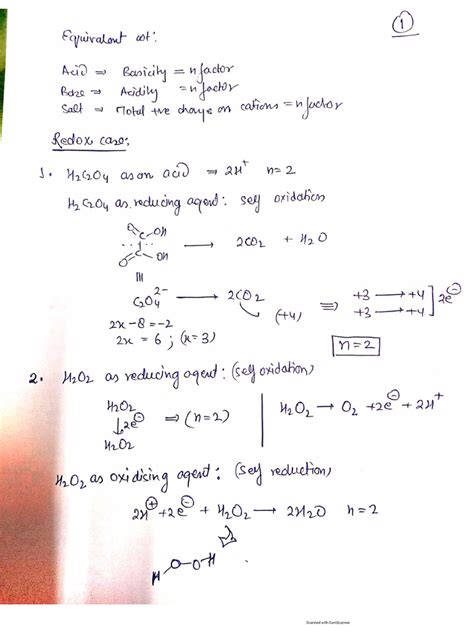 ①
Equivalent wt:
Acid ⇒ Basicity = n factor
Base ⇒ Acidity = n factor
Salt ⇒ Total +ve charge on cations = n factor
Redox case:
1. H2C2O4 as an acid ⇒ 2H+ n=2
H2C2O4 as reducing agent: self oxidation
O C OH
O C OH ⟶ 2CO2 + H2O
C2O4 2- ⟶ 2CO2 (+4) ⇒ +3 ⟶ +4
+3 ⟶ +4 ] 2e⊖
2x-8=-2
2x = 6 ; (x=3) n=2
2. H2O2 as reducing agent: (self oxidation)
H2O2
↓2e⊖ ⇒ (n=2) | H2O2 ⟶ O2 + 2e⊖ + 2H+
H2O2
H2O2 as oxidising agent: (self reduction)
2H⊕ + 2e⊖ + H2O2 ⟶ 2H2O n=2
H-O-O-H
Scanned with CamScanner